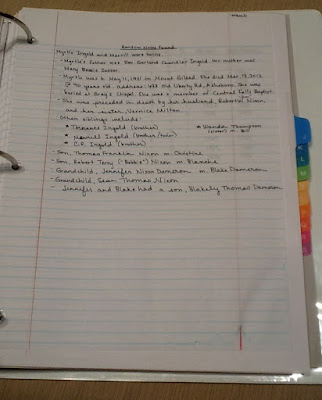 Random notes found
Myrtle Ingold and Merrill were twins.
- Myrtle's father was Ben Garland Chandler Ingold. Her mother was
Mary Bessie Setter.
- Myrtle was b. May 11, 1921 in Mount Gilead. She died Mar. 13, 2012
@ 90 years old. address: Old Liberty Rd, Asheboro. She was
buried at Gray's Chapel. She was a member of Central Falls Baptist.
- She was preceded in death by her husband, Robert J. Nixon,
and her sister, Vernice Milton.
- Other siblings include:
* Thomas Ingold (brother) * Wanda Thompson
* Merrill Ingold (brother/twin) (sister)
* C.P. Ingold (brother)
- Son, Thomas Franklin Nixon m. Christine
- Son, Robert Terry ("Bobbie") Nixon m. Blanche
- Grandchild, Jennifer Nixon Dameron m. Blake Dameron
- Grandchild, Sean Thomas Nixon
- Jennifer and Blake had a son, Blakely Thomas Dameron